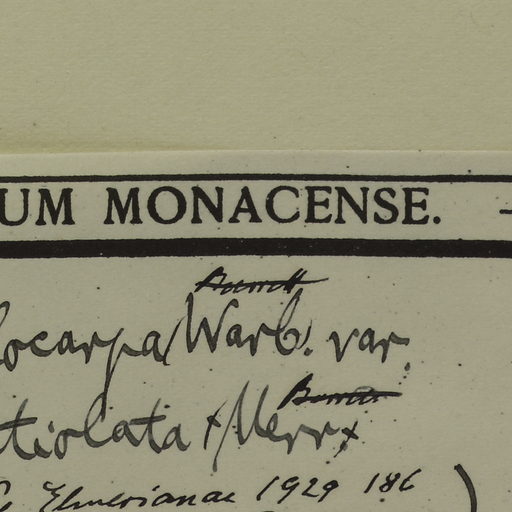 UM MONACENSE.
ocarpa Warb. var.
tiolata Merr.
Elmerianae 1929 186 )